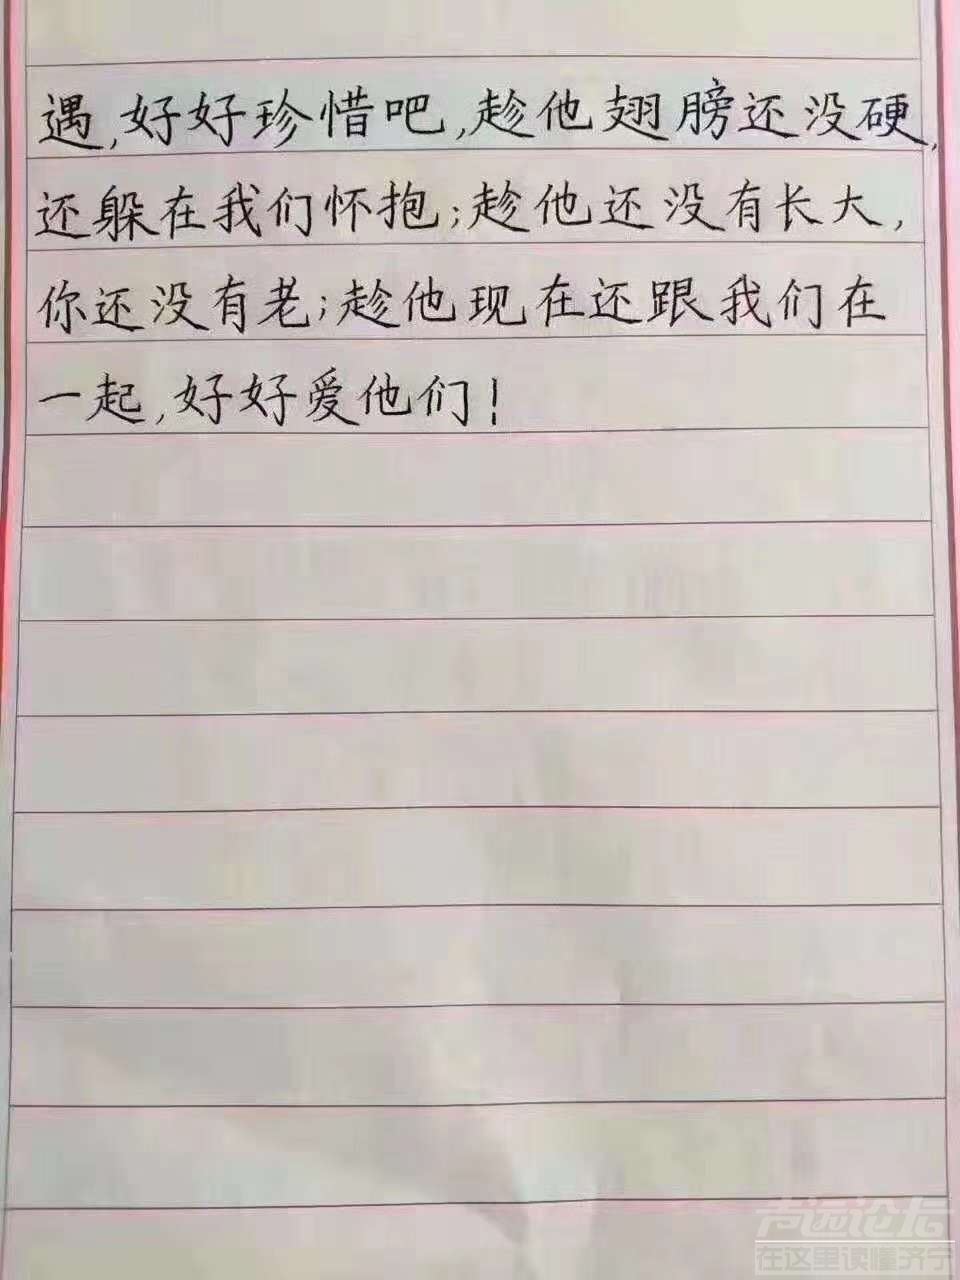 遇,好好珍惜吧,趁他翅膀还没硬,
还躲在我们怀抱;趁他还没有长大,
你还没有老;趁他现在还跟我们在
一起,好好爱他们!
声远论坛
在这里读懂济宁